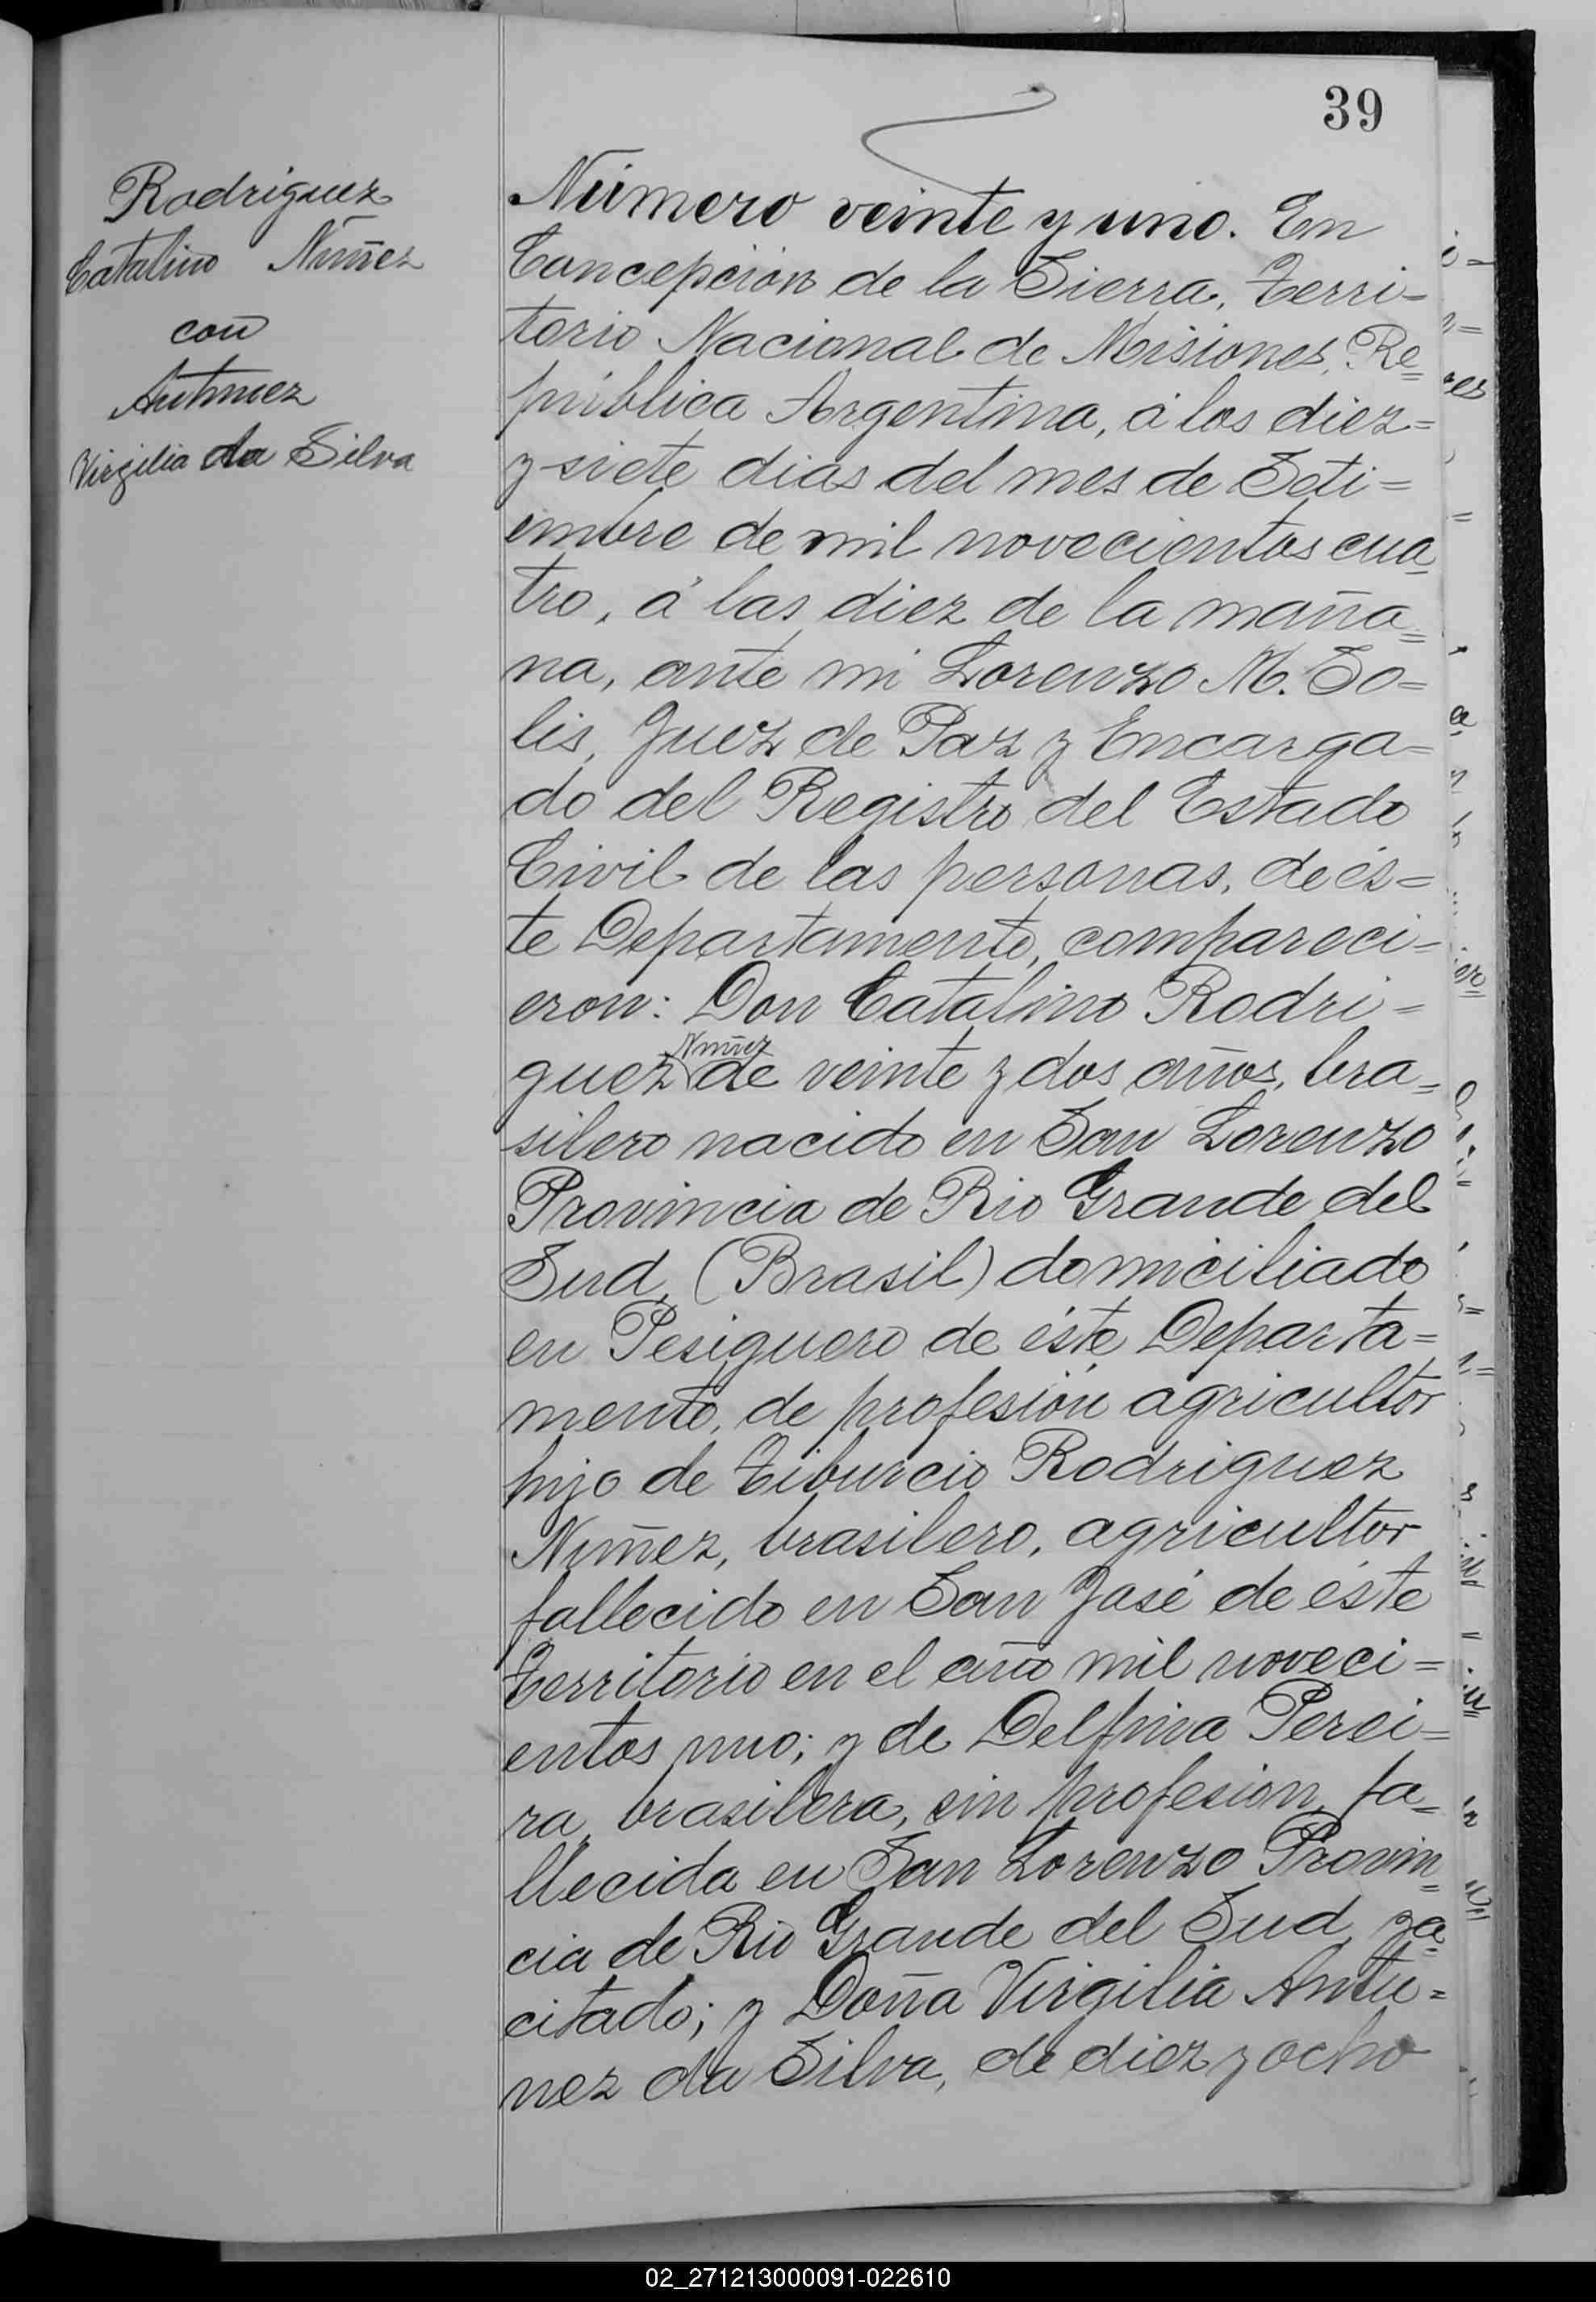 39
Rodriguez
Catalino Nuñez
con
Antunez
Virgilia da Silva
Número veinte y uno. En
Concepción de la Sierra, Terri=
torio Nacional de Misiones, Re=
pública Argentina, á los diez=
y siete dias del mes de Seti=
embre de mil novecientos cua=
tro, á las diez de la maña=
na, ante mi Lorenzo M. So=
lis, Juez de Paz y Encarga=
do del Registro del Estado
Civil de las personas, de és=
te Departamento, compareci=
eron: Don Catalino Rodri=
guez Nuñez de veinte y dos años, bra=
silero nacido en San Lorenzo
Provincia de Rio Grande del
Sud, (Brasil) domiciliado
en Pesiguero de éste Departa=
mento, de profesión agricultor
hijo de Tiburcio Rodriguez
Nuñez, brasilero, agricultor
fallecido en San José de éste
Territorio en el año mil noveci=
entos uno; y de Delfina Perei=
ra, brasilera, sin profesion, fa=
llecida en San Lorenzo Provin=
cia de Rio Grande del Sud, ya=
citado; y Doña Virgilia Antu=
nez da Silva, de diez y ocho
02_271213000091-022610